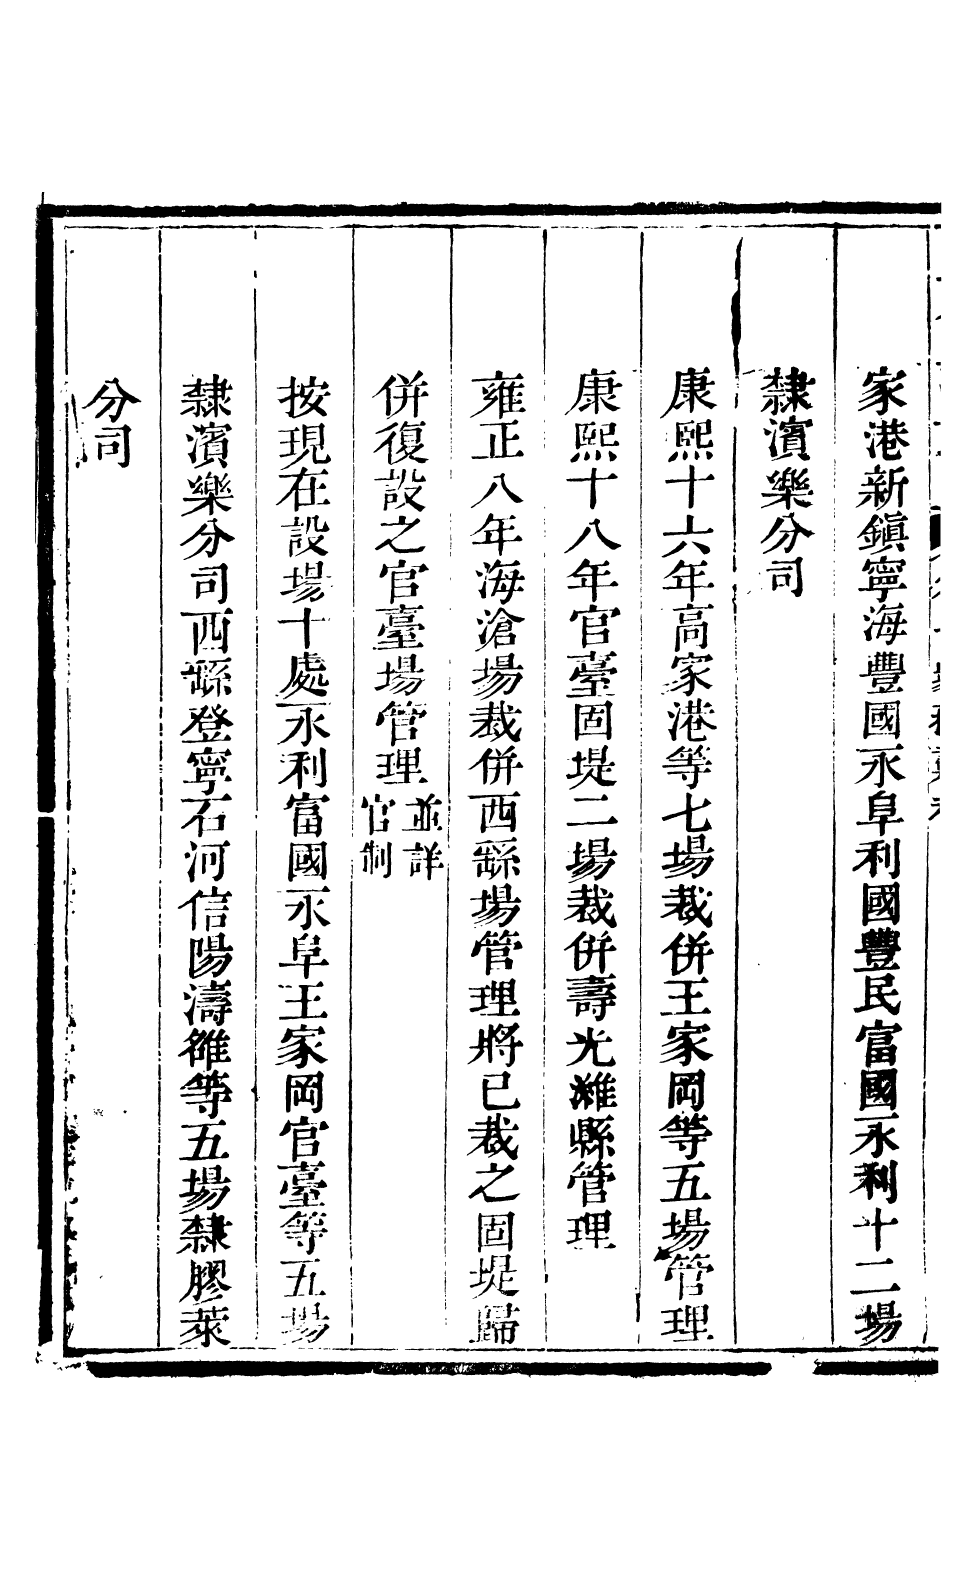 家港新鎮寧海豐國永阜利國豐民富國永利十二場
隸濱樂分司
康熙十六年高家港等七場裁併王家岡等五場管理
康熙十八年官臺固堤二場裁併壽光濰縣管理
雍正八年海滄場裁併西繇場管理將已裁之固堤歸
併復設之官臺場管理並詳
官制
按現在設場十處永利富國永阜王家岡官臺等五場
隸濱樂分司西繇登寧石河信陽濤雒等五場隸膠萊
分司